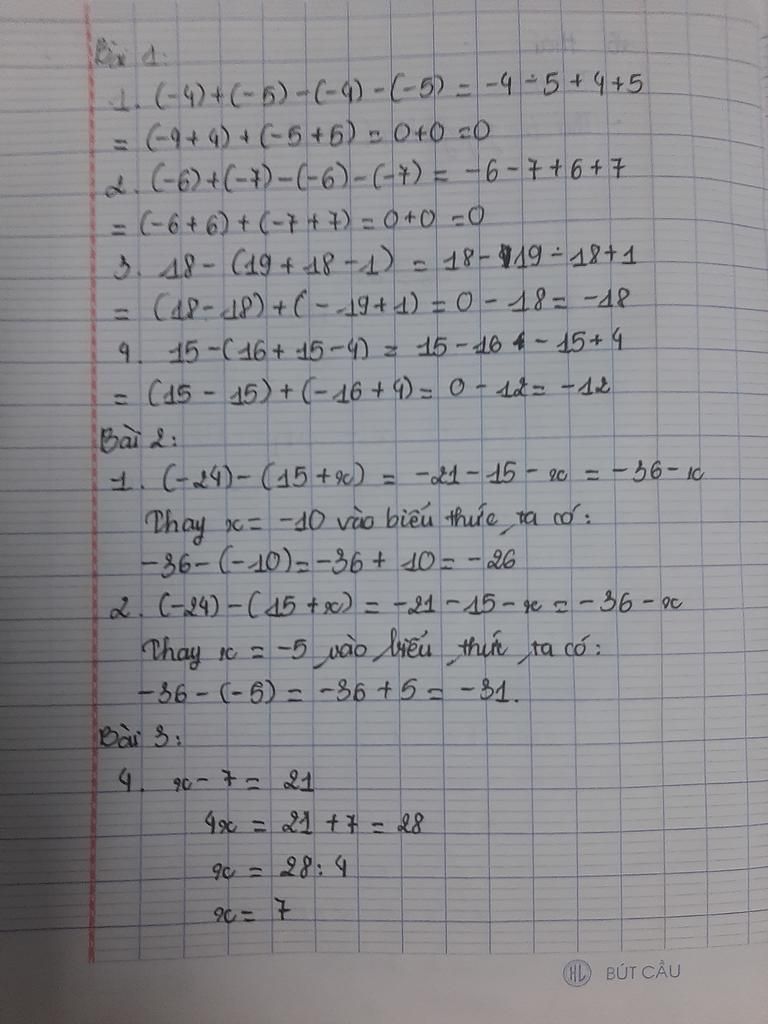 Bài 1:
1. (-4) + (-5) - (-4) - (-5) = -4 - 5 + 4 + 5
= (-4 + 4) + (-5 + 5) = 0 + 0 = 0
2. (-6) + (-7) - (-6) - (-7) = -6 - 7 + 6 + 7
= (-6 + 6) + (-7 + 7) = 0 + 0 = 0
3. 18 - (19 + 18 - 1) = 18 - 19 - 18 + 1
= (18 - 18) + (-19 + 1) = 0 - 18 = -18
4. 15 - (16 + 15 - 4) = 15 - 16 - 15 + 4
= (15 - 15) + (-16 + 4) = 0 - 12 = -12
Bài 2:
1. (-21) - (15 + x) = -21 - 15 - x = -36 - x
Thay x = -10 vào biểu thức, ta có:
-36 - (-10) = -36 + 10 = -26
2. (-21) - (15 + x) = -21 - 15 - x = -36 - x
Thay x = -5 vào biểu thức, ta có:
-36 - (-5) = -36 + 5 = -31.
Bài 3:
4. x - 7 = 21
4x = 21 + 7 = 28
x = 28 : 4
x = 7
HL BÚT CẦU